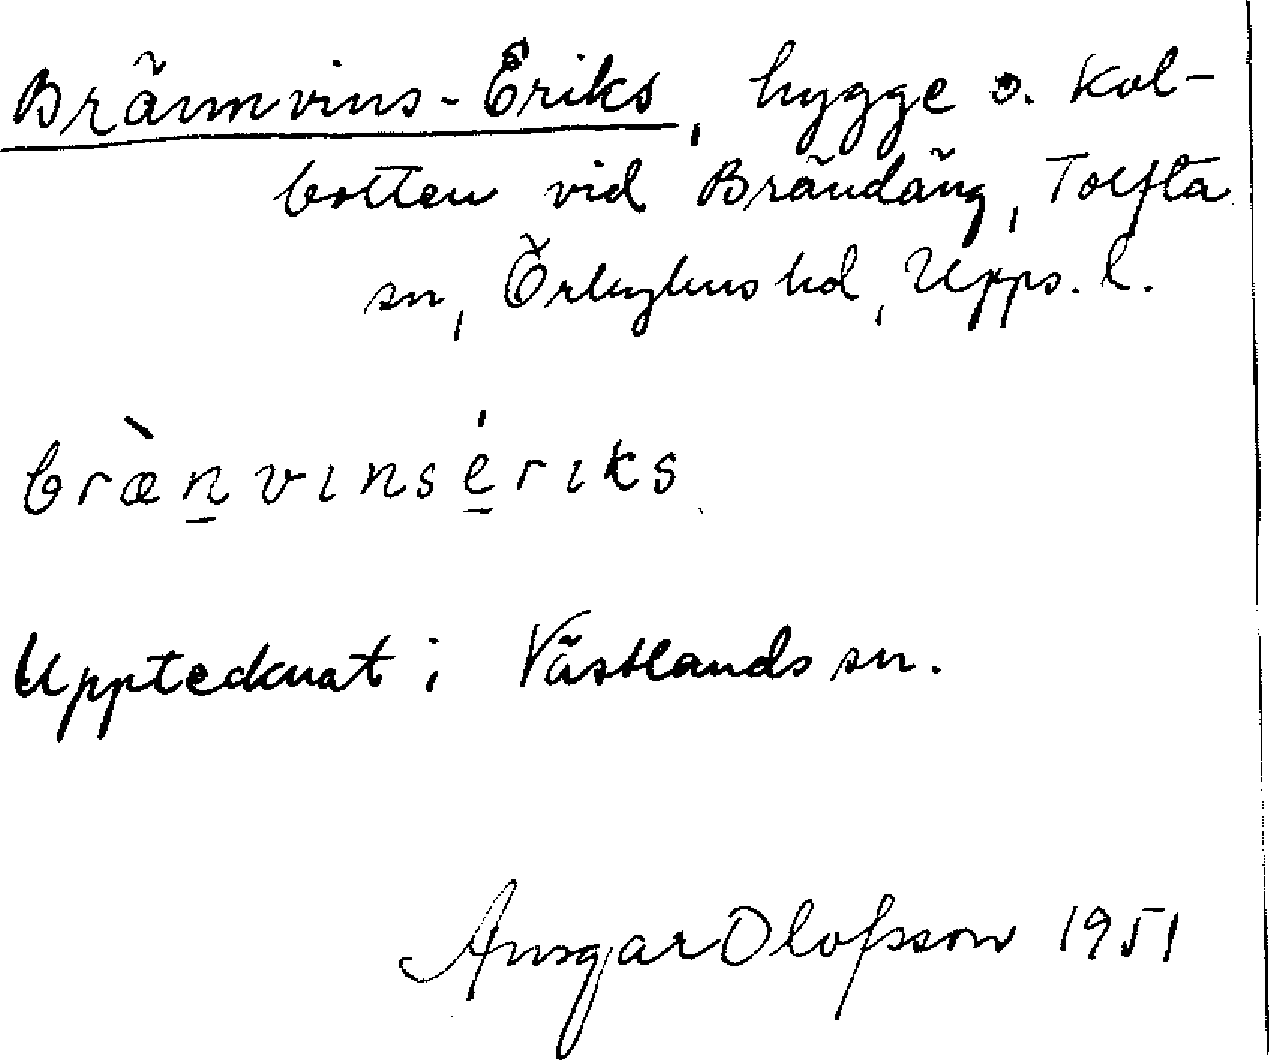 Brännvins-Eriks, hygge o. kol-
botten vid Brändäng, Tolfta
sn, Örbyhus hd, Upps. l.
bræ̀n̠vınsé̠rıks
Upptecknat i Västlands sn.
Ansgar Olofsson 1951